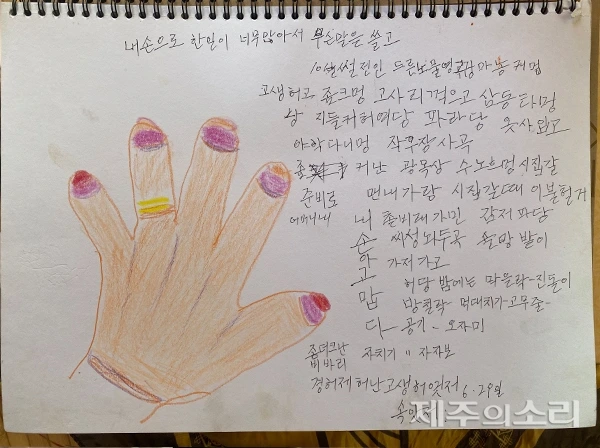 내손으로 한일이 너무많아서 무슨말을 쓸고
10살전인 드른노물영 마농 커멍
고생허고 좀크멍 고사리 꺽으고 삼동타멍
상 지들커허여당 파라당 옷사입고
야학다니멍 작주장사곡
좀 커난 광목상 수노흐멍 시집갈
준비로 면내가랑 시집갈때 이불헐거
어머니네 촐비래가민 감저파당
씨성놔두곡 솔방발이
가저가고
허당 밤에는 막을락-진돌이
방칠락- 먹대치가고무줄-
공기- 오자미
좀더크난 자치기 " 자자보
비바리
경허제허난고생허엿저 6.29일
내 손 아 고 맙 다
제주의소리